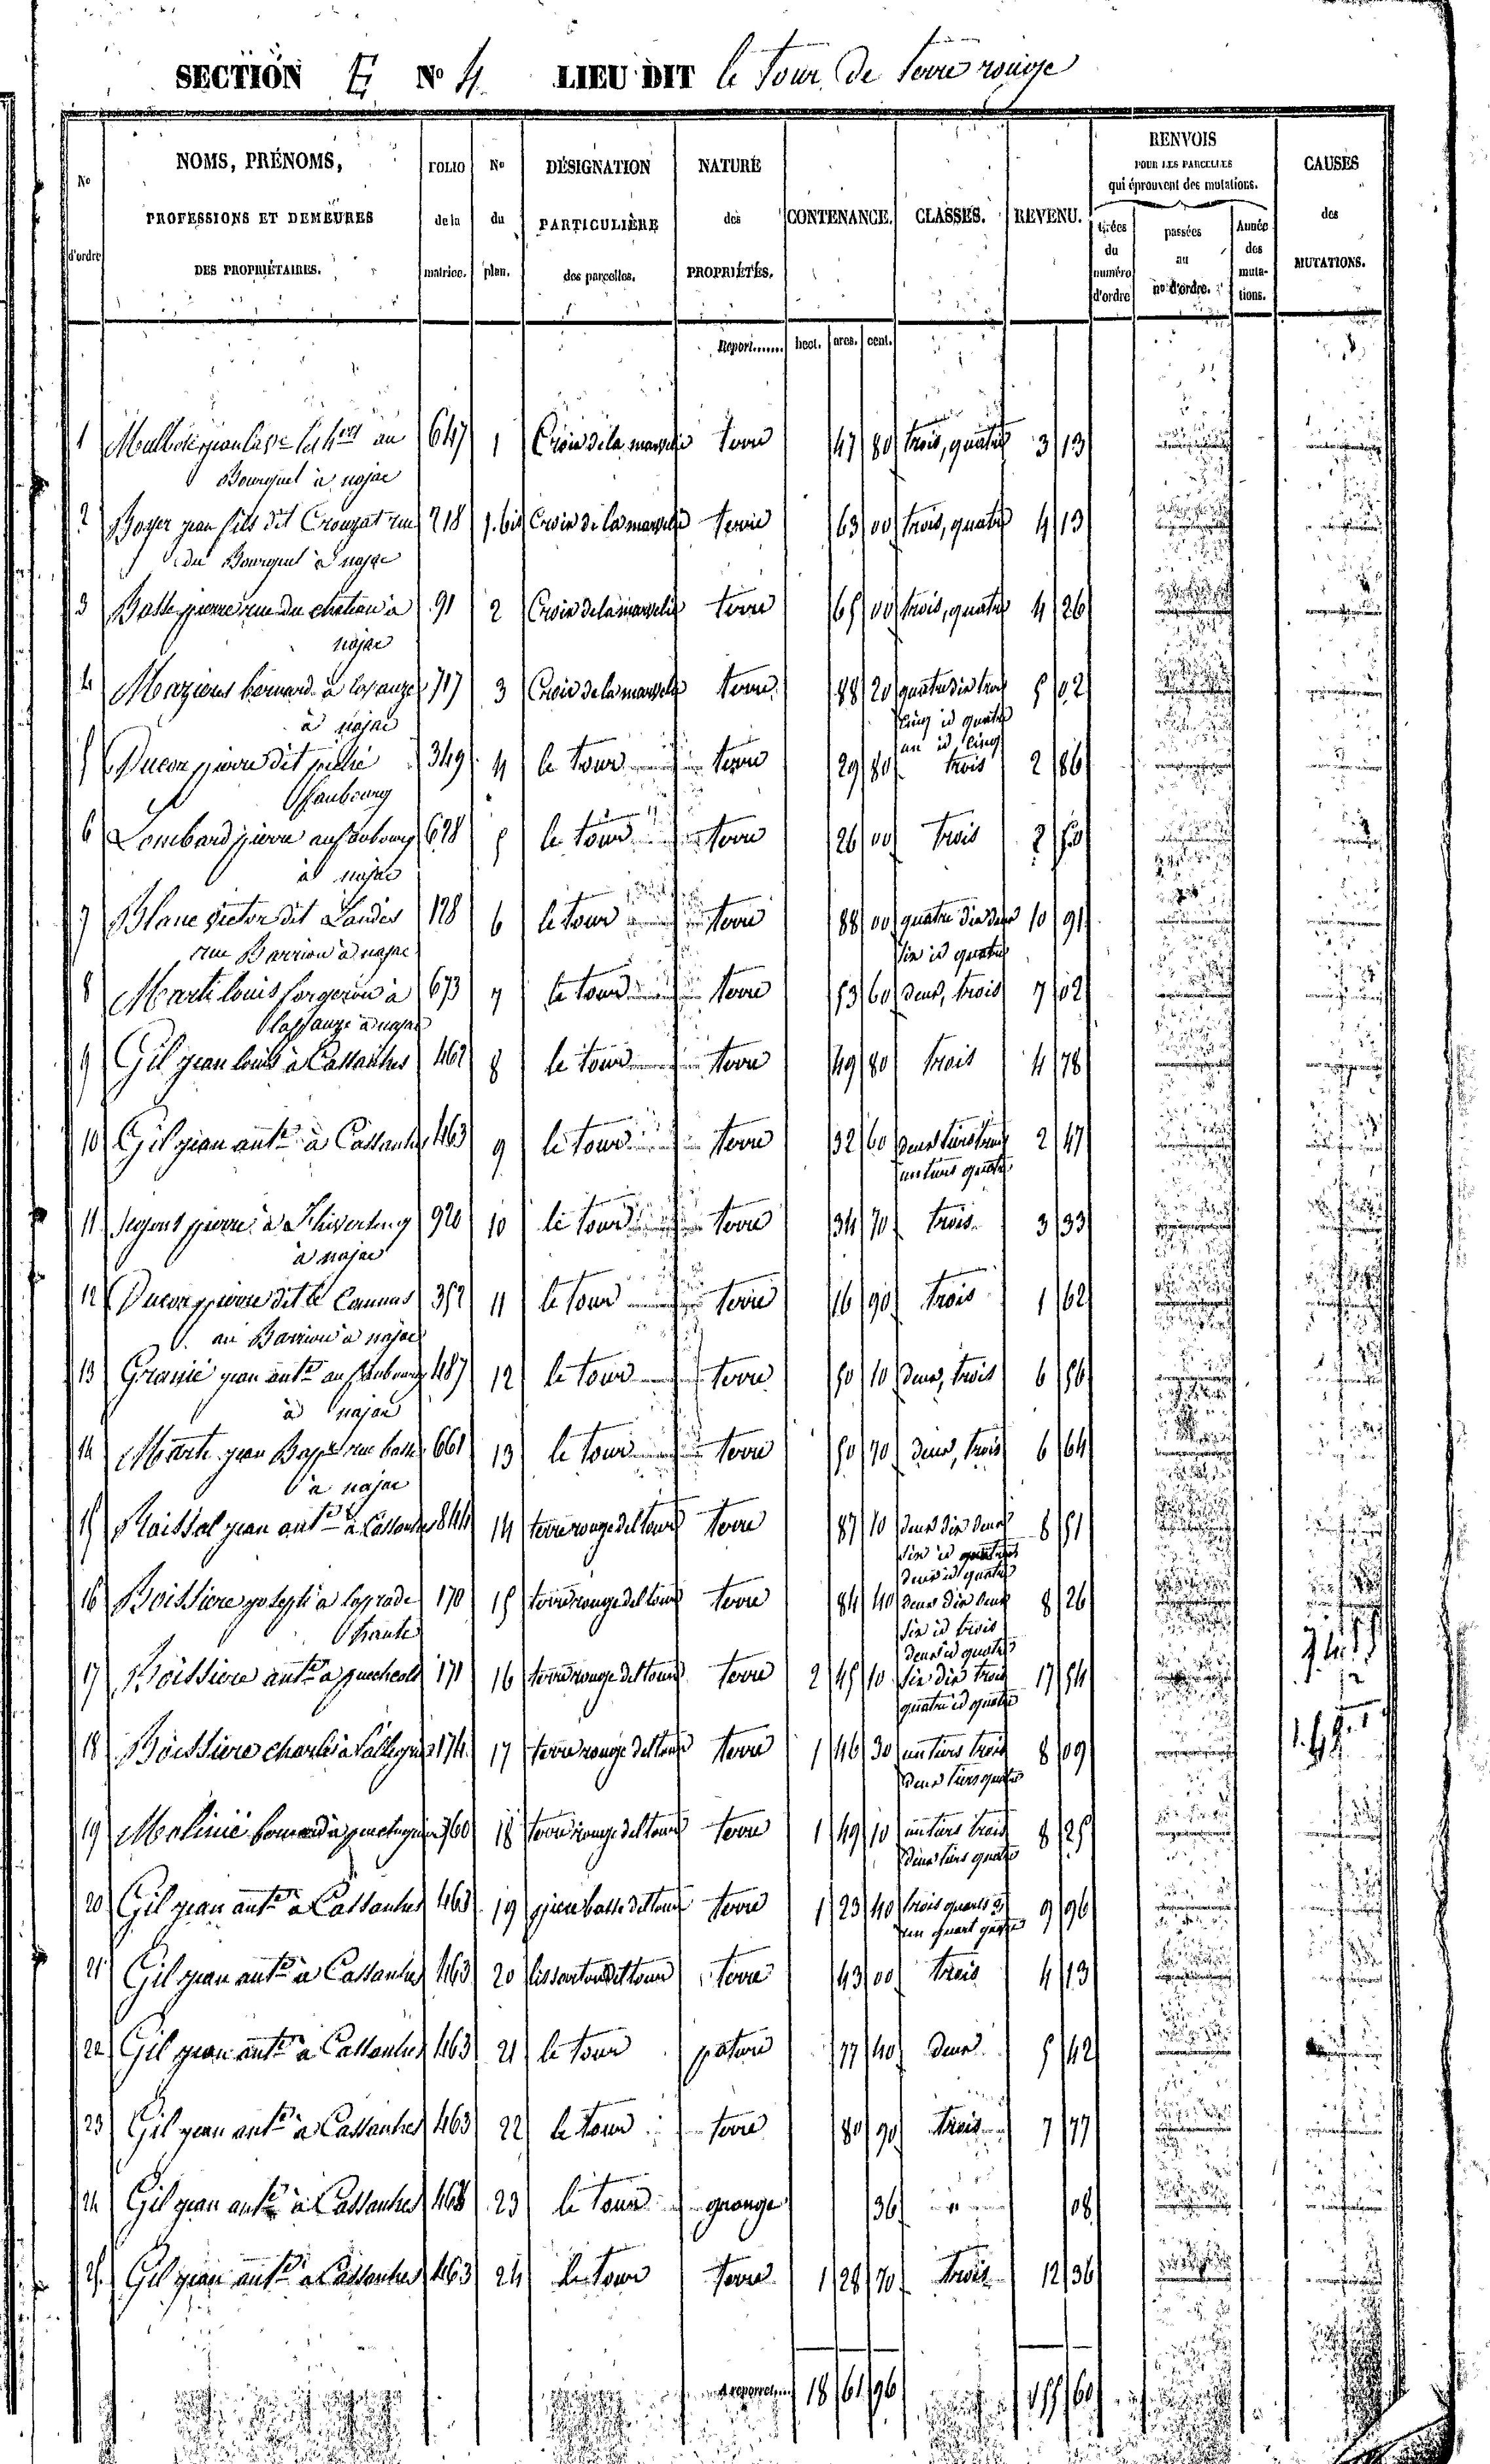 SECTION E No 4. LIEU DIT le tour de terre rouge
No d'ordre
NOMS, PRÉNOMS, PROFESSIONS ET DEMEURES DES PROPRIÉTAIRES.
FOLIO de la matrice.
No du plan.
DÉSIGNATION PARTICULIÈRE des parcelles.
NATURE des PROPRIÉTÉS.
CONTENANCE.
CLASSES.
REVENU.
RENVOIS POUR LES PARCELLES qui éprouvent des mutations.
tirées du numéro d'ordre
passées au no d'ordre.
Année des mutations.
CAUSES des MUTATIONS.
Report....... hect. ares. cent.
1 au 647 1 Croix de la terre 47 80 trois, quatre 3 13
Bourguet à najac
2 Boyer jean fils dit Crouzat rue 218 1.bis Croix de la terre 63 00 trois, quatre 4 13
du Bourguet à najac
3 pierre rue du chateau à 91 2 Croix de la terre 65 00 trois, quatre 4 26
najac
4 Mazieres bernard à 717 3 Croix de la terre 88 20 quatre dix trois 5 02
à najac cinq id quatre
un id cinq
5 pierre dit 349 4 le tour terre 29 80 trois 2 86
faubourg
6 Lombard pierre au faubourg 628 5 le tour terre 26 00 trois 2 50
à najac
7 Blanc victor dit Landes 128 6 le tour terre 88 00 quatre dix deux 10 91
rue Barriou à najac six id quatre
8 Marti louis forgeron à 673 7 le tour terre 53 60 deux, trois 7 02
à najac
9 Gil jean louis à Cassanhes 462 8 le tour terre 49 80 trois 4 78
10 Gil jean ante à Cassanhes 463 9 le tour terre 32 60 deux tiers trois 2 47
un tiers quatre
11 Segont pierre à 920 10 le tour terre 34 70 trois 3 33
à najac
12 pierre dit 352 11 le tour terre 16 90 trois 1 62
au Barriou à najac
13 Granié jean ante au faubourg 487 12 le tour terre 50 10 deux, trois 6 56
à najac
14 Marti jean Bapte rue basse 661 13 le tour terre 50 70 deux, trois 6 64
à najac
15 Raissal jean ante à Cassanhes 844 14 terre rouge del tour terre 87 10 deux dix deux 8 51
six id
deux id quatre
16 Boissiere joseph à laprade 170 15 terre rouge del tour terre 84 40 deux dix deux 8 26
haute six id trois
deux id quatre
17 Boissiere ante à 171 16 terre rouge del tour terre 2 45 10 six dix trois 17 54
quatre id quatre
18 Boissiere charles à 174 17 terre rouge del tour terre 1 46 30 un tiers trois 8 09
deux tiers quatre
19 Molinié bernard à 760 18 terre rouge del tour terre 1 49 10 un tiers trois 8 25
deux tiers quatre
20 Gil jean ante à Cassanhes 463 19 del tour terre 1 23 40 trois quarts 3 9 96
un quart quatre
21 Gil jean ante à Cassanhes 463 20 del tour terre 43 00 trois 4 13
22 Gil jean ante à Cassanhes 463 21 le tour pature 77 40 deux 5 42
23 Gil jean ante à Cassanhes 463 22 le tour terre 80 90 trois 7 77
24 Gil jean ante à Cassanhes 463 23 le tour grange 36 08
25 Gil jean ante à Cassanhes 463 24 le tour terre 1 28 70 trois 12 36
A reporter 18 61 96 155 60